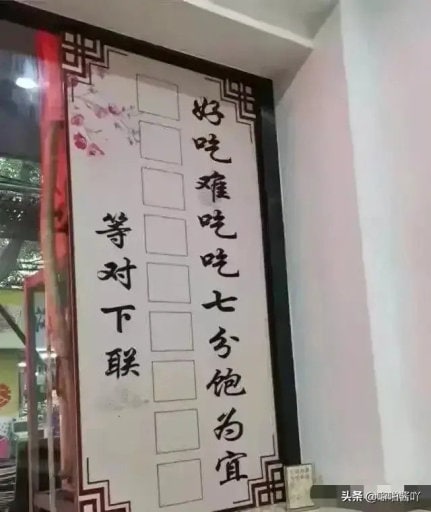 好吃难吃吃七分饱为宜
等对下联
头条 @